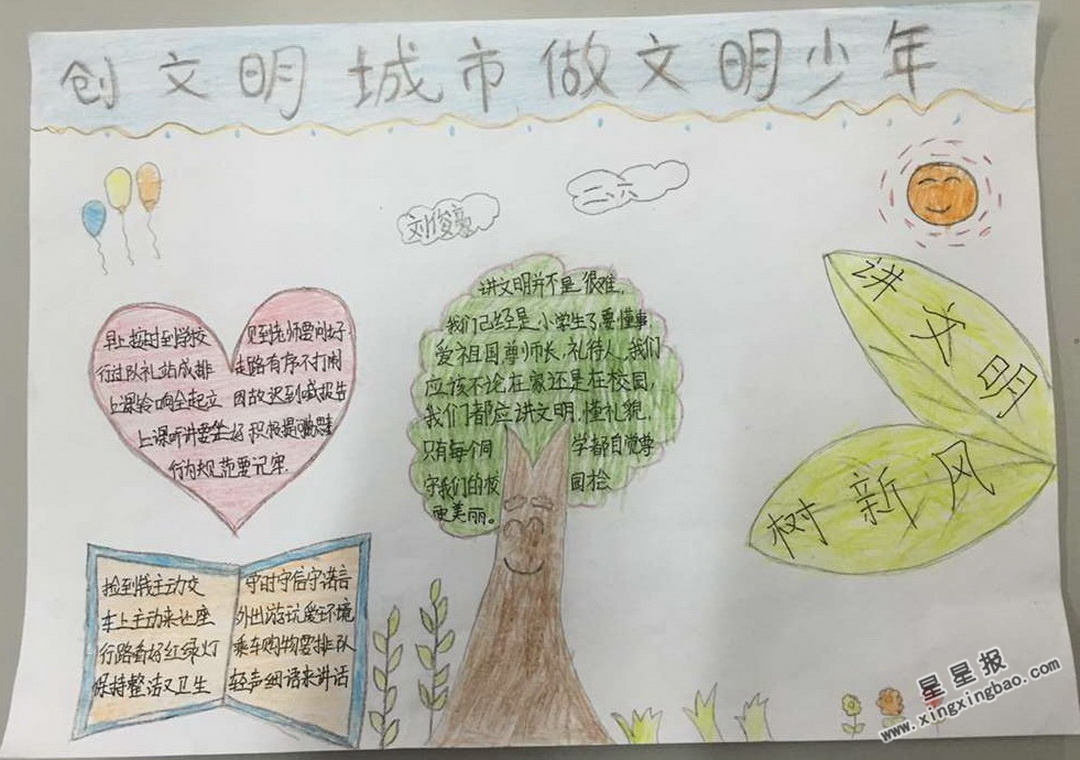 创文明城市做文明少年
二、六
刘俊豪
早上按时到学校 见到老师要问好
行过队礼站成排 走路有序不打闹
上课铃响全起立 因故迟到喊报告
上课听讲要坐好 积极提问勤思
行为规范要记牢
讲文明并不是很难，
我们已经是小学生了要懂事
爱祖国尊师长，礼待人，我们
应该不论在家还是在校园，
我们都应讲文明，懂礼貌，
只有每个同学都自觉尊
守我们的校园
更美丽。
讲文明
树新风
捡到钱主动交
车上主动来让座
行路看好红绿灯
保持整洁又卫生
守时守信守诺言
外出游玩爱环境
乘车购物要排队
轻声细语来讲话
星星报
www.xingxingbao.com